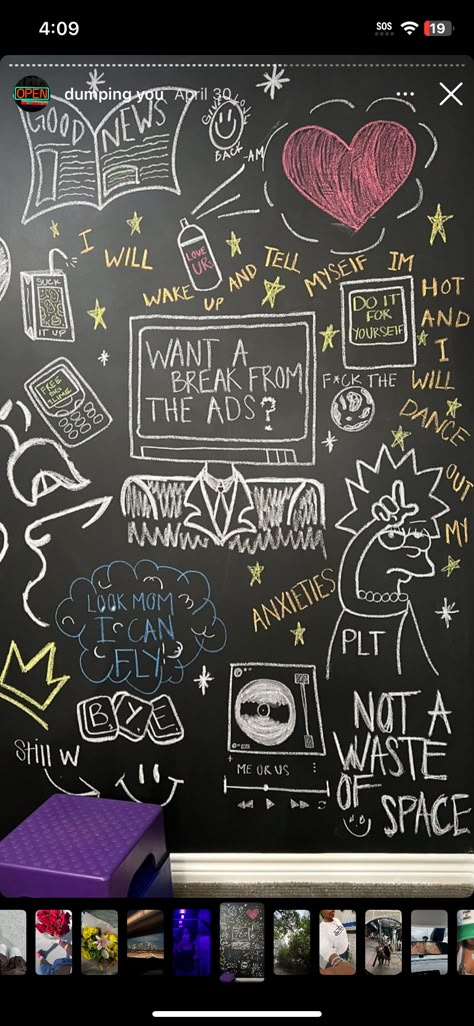 4:09
SOS
19
OPEN
dumping you April 30
GOOD NEWS
GIVE LOVE
BACK
-AM
LOVE
UR
I WILL
WAKE UP AND TELL MYSElF IM
HOT
AND
I
WILL
DANCE
OUT
MI
ANXIETIES
SUCK
IT UP
DO IT
FOR
YOURSELF
WANT A
BREAK FROM
THE ADS?
F*CK THE
FREE
BIG
SLIME
LOOK MOM
I CAN
FLY
PLT
BYE
Still W
ME OR US
NOT A
WASTE
OF
SPACE